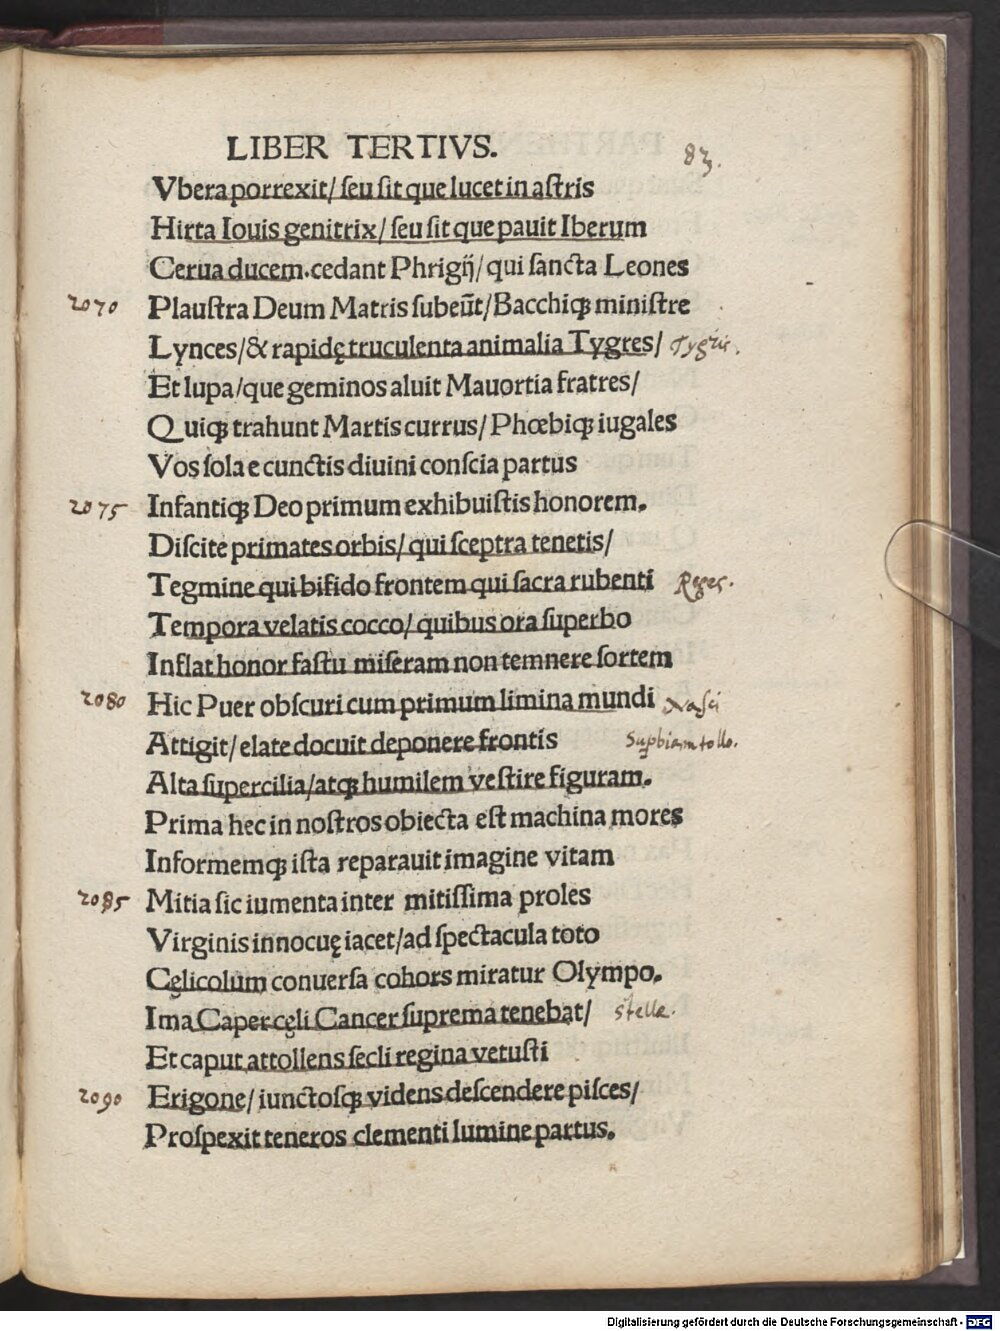 LIBER TERTIVS.
83.
Vbera porrexit/ seu sit que lucet in astris
Hirta Iouis genitrix/ seu sit que pauit Iberum
Cerua ducem. cedant Phrigij/ qui sancta Leones
2070 Plaustra Deum Matris subeūt/ Bacchiqꝫ ministre
Lynces/ & rapidę truculenta animalia Tygres/ Tygris.
Et lupa/ que geminos aluit Mauortia fratres/
Quiqꝫ trahunt Martis currus/ Phœbiqꝫ iugales
Vos sola e cunctis diuini conscia partus
2075 Infantiqꝫ Deo primum exhibuistis honorem.
Discite primates orbis/ qui sceptra tenetis/
Tegmine qui bifido frontem qui sacra rubenti Reges.
Tempora velatis cocco/ quibus ora superbo
Inflat honor fastu miseram non temnere sortem
2080 Hic Puer obscuri cum primum limina mundi Nasci
Attigit/ elate docuit deponere frontis Supbiam tollo.
Alta supercilia/ atqꝫ humilem vestire figuram.
Prima hec in nostros obiecta est machina mores
Informemqꝫ ista reparauit imagine vitam
2085 Mitia sic iumenta inter mitissima proles
Virginis innocuę iacet/ ad spectacula toto
Cęlicolum conuersa cohors miratur Olympo.
Ima Caper cęli Cancer suprema tenebat/ stelle.
Et caput attollens secli regina vetusti
2090 Erigone/ iunctosqꝫ videns descendere pisces/
Prospexit teneros clementi lumine partus.
Digitalisierung gefördert durch die Deutsche Forschungsgemeinschaft - DFG